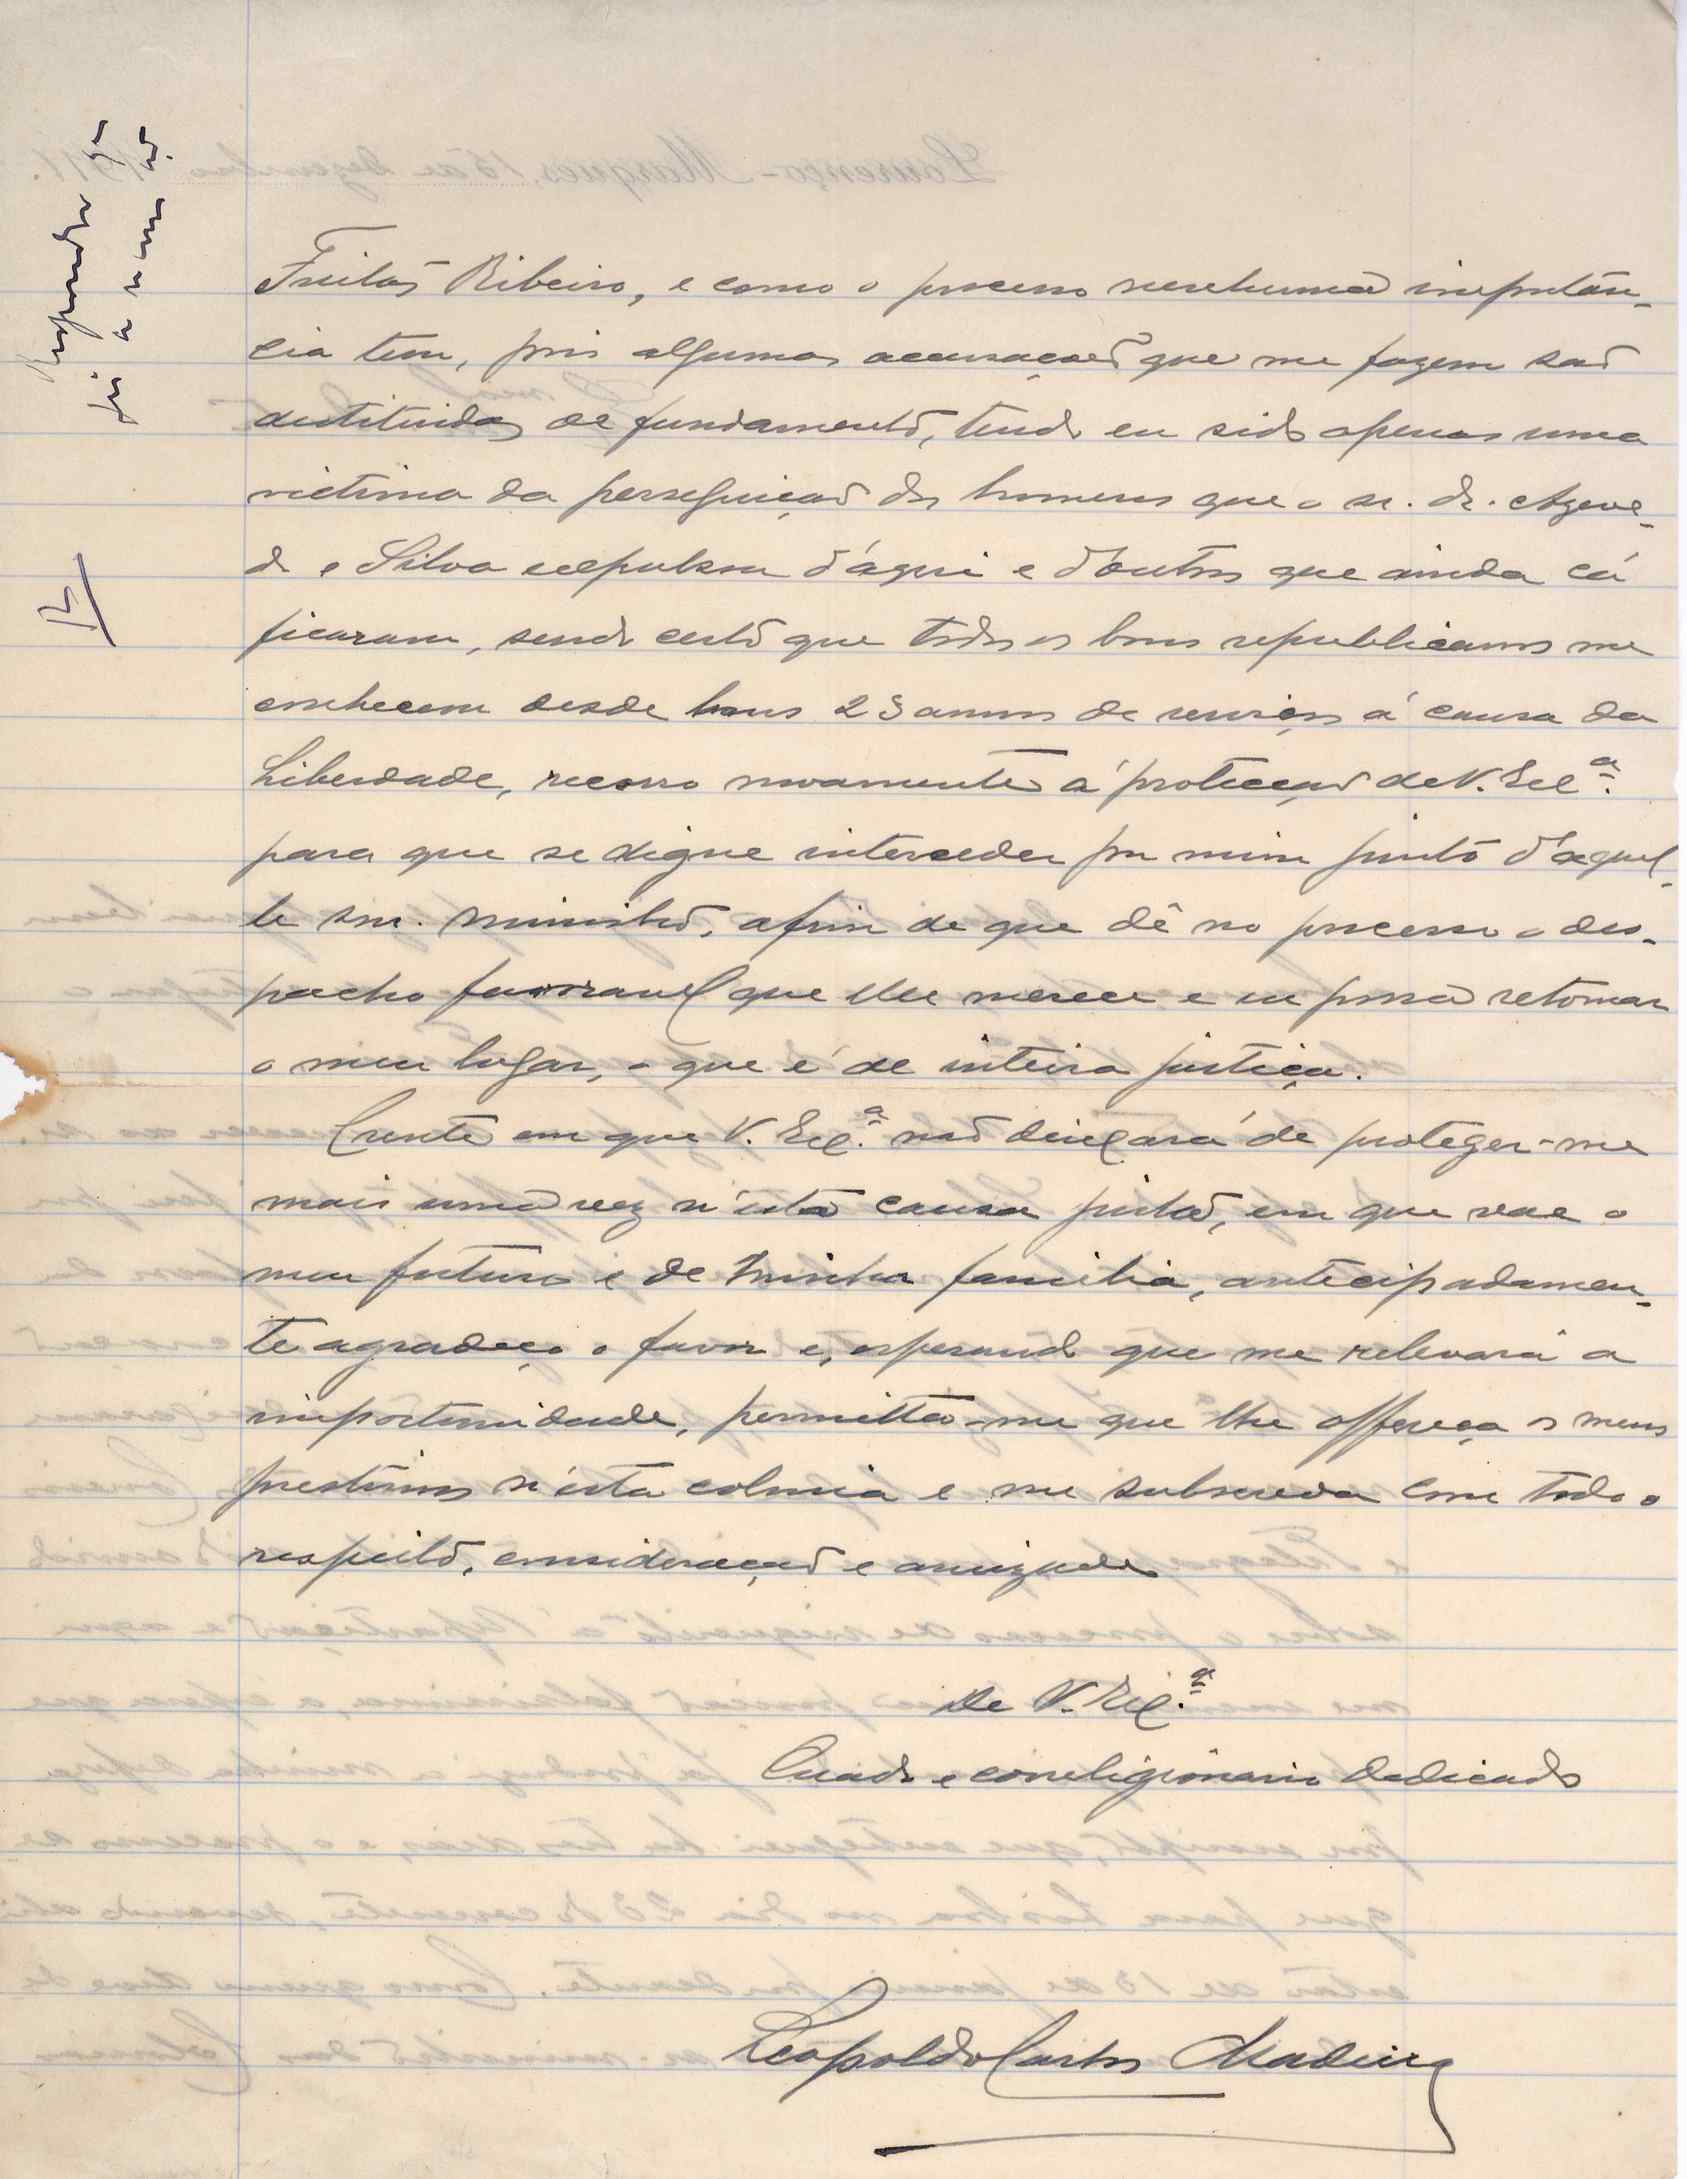 Respondido
já a
Freitas Ribeiro, e como o processo nenhuma importan-
cia tem, pois algumas accusações que me fazem são
destituidas de fundamento, tendo eu sido apenas uma
victima da perseguição dos homens que o sr. dr. Azeve-
do e Silva expulsou d'aqui e d'outros que ainda cá
ficaram, sendo certo que todos os bons republicanos me
conhecem desde bons 23 annos de serviços á causa da
Liberdade, recorro novamente á protecção de V. Exª.
para que se digne interceder por mim junto d'aquel-
le snr. ministro, afim de que dê no processo o des-
pacho favoravel que elle merece e eu possa retomar
o meu logar, o que é de inteira justiça.
Crente em que V. Exª. não deixará de proteger-me
mais uma vez n'esta causa justa, em que vae o
meu futuro e de minha familia, antecipadamen-
te agradeço o favor e, esperando que me relevará a
importunidade, permitta-me que lhe offereça os meus
prestimos n'esta colonia e me subscreva com todo o
respeito, consideração e amizade
De V. Exª.
Criado e correligionario dedicado
Leopoldo Carlos Madeira